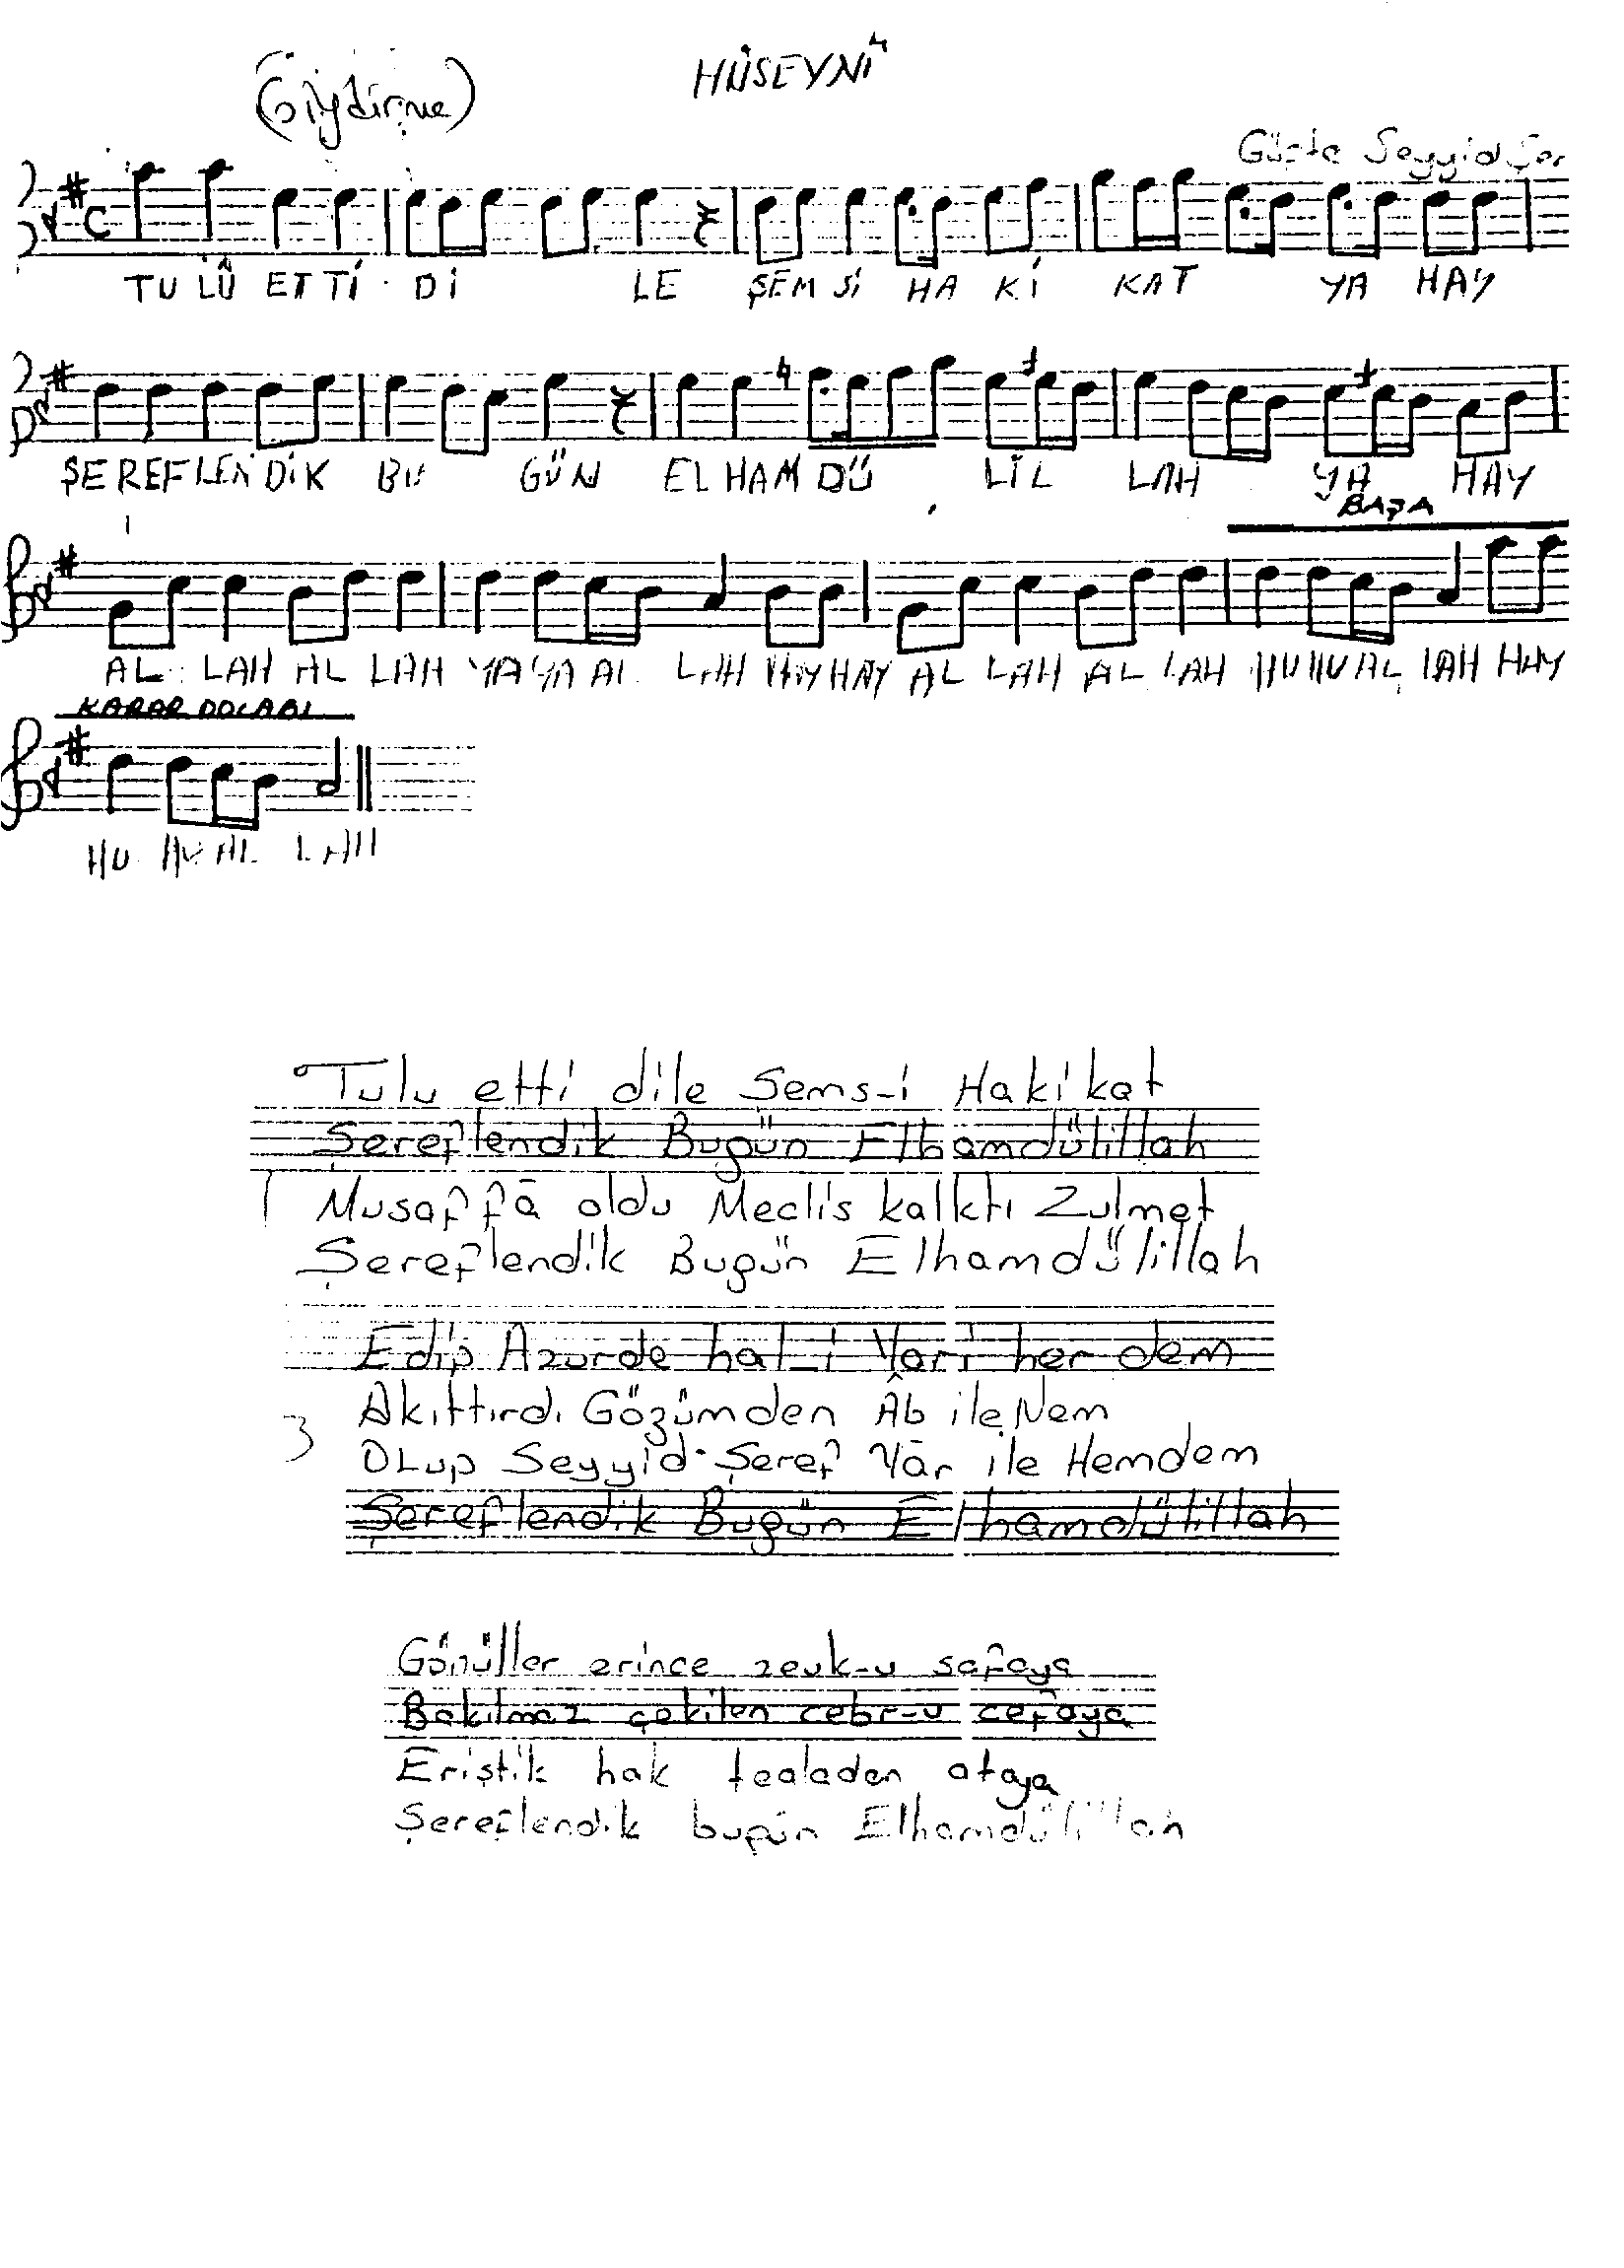 HÜSEYNİ
(Giydirme)
Güfte Seyyid Şer
TU LÛ ET Tİ Dİ LE ŞEM Sİ HA Kİ KAT YA HAY
ŞE REF LEN DİK BU GÜN EL HAM DÜ LİL LAH YA HAY
BAŞA
AL LAH AL LAH YA YA AL LAH HAY HAY AL LAH AL LAH HU HU AL LAH HAY
KARAR DOLABI
HU HU AL LAH
Tulu etti dile Şems-i Hakikat
Şereflendik Bugün Elhamdülillah
1 Musaffā oldu Meclis kalktı Zulmet
Şereflendik Bugün Elhamdülillah
Edip Azurde hal-i Yari her dem
Akıttırdı Gözümden Âb ile Nem
3 Olup Seyyid Şeref Yār ile Hemdem
Şereflendik Bugün Elhamdülillah
Gönüller erince zevk-u safaya
Bakılmaz çekilen cebr-u cefaya
Eriştik hak tealaden ataya
Şereflendik bugün Elhamdülillah